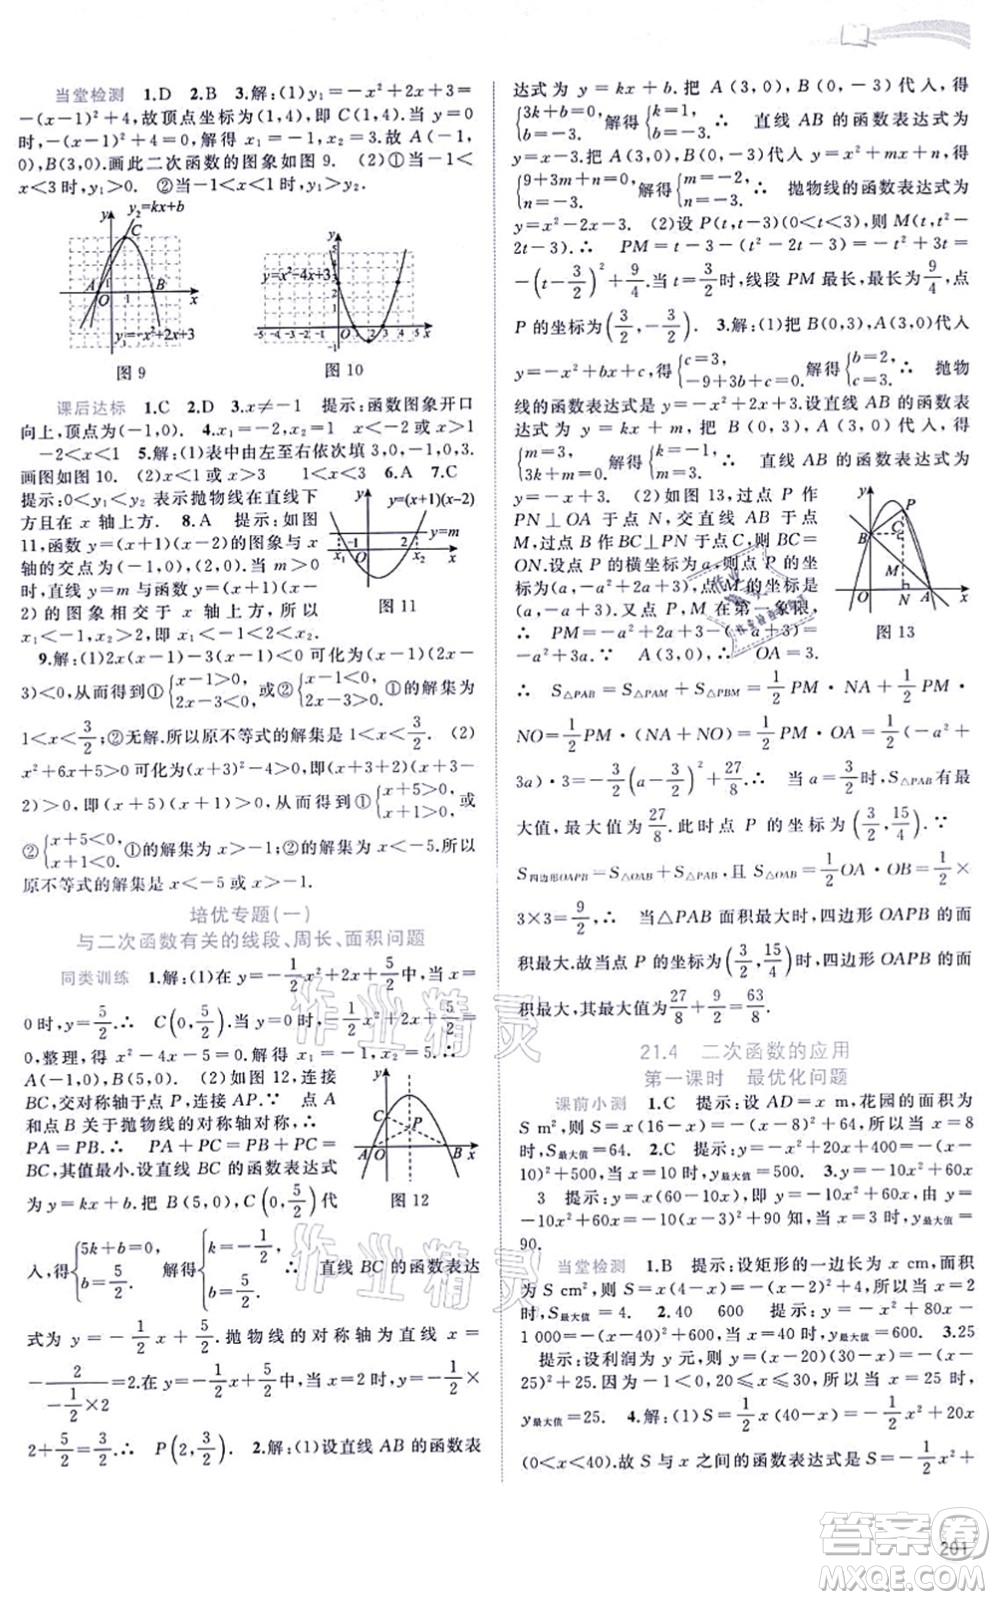 当堂检测 1.D 2.B 3.解:(1)y₁=-x²+2x+3=
-(x-1)²+4,故顶点坐标为(1,4),即 C(1,4).当
-(x-1)²+4=0 时,解得 x₁=-1,x₂=3.故 A(-1,
0),B(3,0).画此二次函数的图象如图 9. (2)①当-1<
x<3 时,y₁>0. ②当-1<x<1 时,y₁>y₂.
y y₂=kx+b
C
A O 1 B x
y=-x²+2x+3
图 9
y=x²-4x+3
-5-4-3-2-1 O 1 2 3 4 5 x
图 10
课后达标 1.C 2.D 3.x≠-1 提示:函数图象开口
向上,顶点为(-1,0). 4.x₁=-2,x₂=1 x<-2或x>1
-2<x<1 5.解:(1)表中由左至右依次填 3,0,-1,0.
画图如图 10. (2)x<1 或 x>3 1<x<3 6.A 7.C
提示:0<y₁<y₂ 表示抛物线在直线下
方且在 x 轴上方. 8.A 提示:如图
11,函数 y=(x+1)(x-2)的图象与 x
轴的交点为(-1,0)和(2,0).根据题
意,直线 y=m 与函数 y=(x+1)(x-
2)的图象相交于 x 轴上方,所以
x₁<-1,x₂>2.所以 x₁<-1<2<x₂.
y=(x+1)(x-2)
y=m
x₁ -1 2 x₂ x
图 11
9.解:(1)2x(x-1)-3(x-1)<0 可化为(x-1)(2x-
3)<0,从而得到①{x-1>0, 2x-3<0 或②{x-1<0, 2x-3>0. ①的解集为
1<x<3/2;②无解.所以原不等式的解集是 1<x<3/2. (2)
x²+6x+5>0,即(x+3)²-4>0,可化为(x+3+2)(x+3-
2)>0,即(x+5)(x+1)>0,从而得到①{x+5>0, x+1>0 或
②{x+5<0, x+1<0. ①的解集为 x>-1;②的解集为 x<-5.所以
原不等式的解集是 x<-5 或 x>-1.
培优专题(一)
与二次函数有关的线段、周长、面积问题
同类训练 1.解:(1)在 y=-1/2x²+2x+5/2中,当 x=
0时,y=5/2.∴ C(0,5/2).当 y=0 时,-1/2x²+2x+5/2=
0,整理,得 x²-4x-5=0.解得 x₁=5,x₂=-1.∴
A(-1,0),B(5,0). (2)如图 12,连接
BC,交对称轴于点 P,连接 AP.∵ 点 A
和点 B 关于抛物线的对称轴对称,∴
PA=PB.∴ PA+PC=PB+PC=
BC,其值最小.设直线 BC 的函数表达式
为 y=kx+b.把 B(5,0),C(0,5/2)代
y C P A O B x
图 12
入,得{5k+b=0, b=5/2. 解得{k=-1/2, b=5/2. ∴ 直线 BC 的函数表达
式为 y=-1/2x+5/2.抛物线的对称轴为直线 x=
-2/(-1/2×2)=2.在 y=-1/2x+5/2中,当 x=2 时,y=-1/2×
2+5/2=3/2.∴ P(2,3/2). 2.解:(1)设直线 AB 的函数表
达式为 y=kx+b.把 A(3,0),B(0,-3)代入,得
{3k+b=0, b=-3. 解得{k=1, b=-3. ∴ 直线 AB 的函数表达式为
y=x-3.把 A(3,0),B(0,-3)代入 y=x²+mx+n,得
{9+3m+n=0, n=-3. 解得{m=-2, n=-3. ∴ 抛物线的函数表达式为
y=x²-2x-3. (2)设 P(t,t-3)(0<t<3),则 M(t,t²-
2t-3).∴ PM=t-3-(t²-2t-3)=-t²+3t=
-(t-3/2)²+9/4.∴ 当 t=3/2时,线段 PM 最长,最长为9/4,点
P 的坐标为(3/2,-3/2). 3.解:(1)把 B(0,3),A(3,0)代入
y=-x²+bx+c,得{c=3, -9+3b+c=0. 解得{b=2, c=3. ∴ 抛物
线的函数表达式是 y=-x²+2x+3.设直线 AB 的函数表
达式为 y=kx+m,把 B(0,3),A(3,0)代入,得
{m=3, 3k+m=0. 解得{k=-1, m=3. ∴ 直线 AB 的函数表达式为
y=-x+3. (2)如图 13,过点 P 作
PN⊥OA 于点 N,交直线 AB 于点
M,过点 B 作 BC⊥PN 于点 C.∴ BC=
ON.设点 P 的横坐标为 a,则点 P 的坐
标为(a,-a²+2a+3),点 M 的坐标是
(a,-a+3).又点 P,M 在第一象限,
∴ PM=-a²+2a+3-(-a+3)=
-a²+3a.∵ A(3,0),∴ OA=3.
y P C B M O N A x
图 13
∴ S△PAB=S△PAM+S△PBM=1/2PM·NA+1/2PM·
NO=1/2PM·(NA+NO)=1/2PM·OA=1/2(-a²+
3a)·3=-3/2(a-3/2)²+27/8.∴ 当 a=3/2时,S△PAB有最
大值,最大值为27/8.此时点 P 的坐标为(3/2,15/4).∵
S四边形OAPB=S△PAB+S△OAB,且 S△OAB=1/2OA·OB=1/2×
3×3=9/2,∴ 当△PAB 面积最大时,四边形 OAPB 的面
积最大.∴ 当点 P 的坐标为(3/2,15/4)时,四边形 OAPB 的面
积最大,其最大值为27/8+9/2=63/8.
21.4 二次函数的应用
第一课时 最优化问题
课前小测 1.C 提示:设 AD=x m,花园的面积为
S m²,则 S=x(16-x)=-x²+16x=-(x-8)²+64,∴
S最大值=64. 2.C 提示:y=-x²+20x+400=-(x-
10)²+500,∴ 当 x=10 时,y最大值=500. 3.y=-10x²+60x
3 提示:y=x(60-10x),即 y=-10x²+60x.由 y=
-10x²+60x=-10(x-3)²+90 知,当 x=3 时,y最大值=
90.
当堂检测 1.B 提示:设矩形的一边长为 x cm,面积为
S cm²,则 S=x(4-x)=-(x-2)²+4,所以当 x=2 时,
S最大值=4. 2.40 600 提示:y=-x²+80x-
1 000=-(x-40)²+600,当 x=40 时,y最大值=600. 3.25
提示:设利润为 y 元,则 y=(x-20)(30-x)=-(x-
25)²+25.因为 20≤x≤30,所以当 x=25 时,
y最大值=25. 4.解:(1)S=1/2x(40-x)=-1/2x²+20x
(0<x<40).故 S 与 x 之间的函数表达式是 S=-1/2x²+
201
作业精灵
作业精灵
答案圈
MXQE.COM